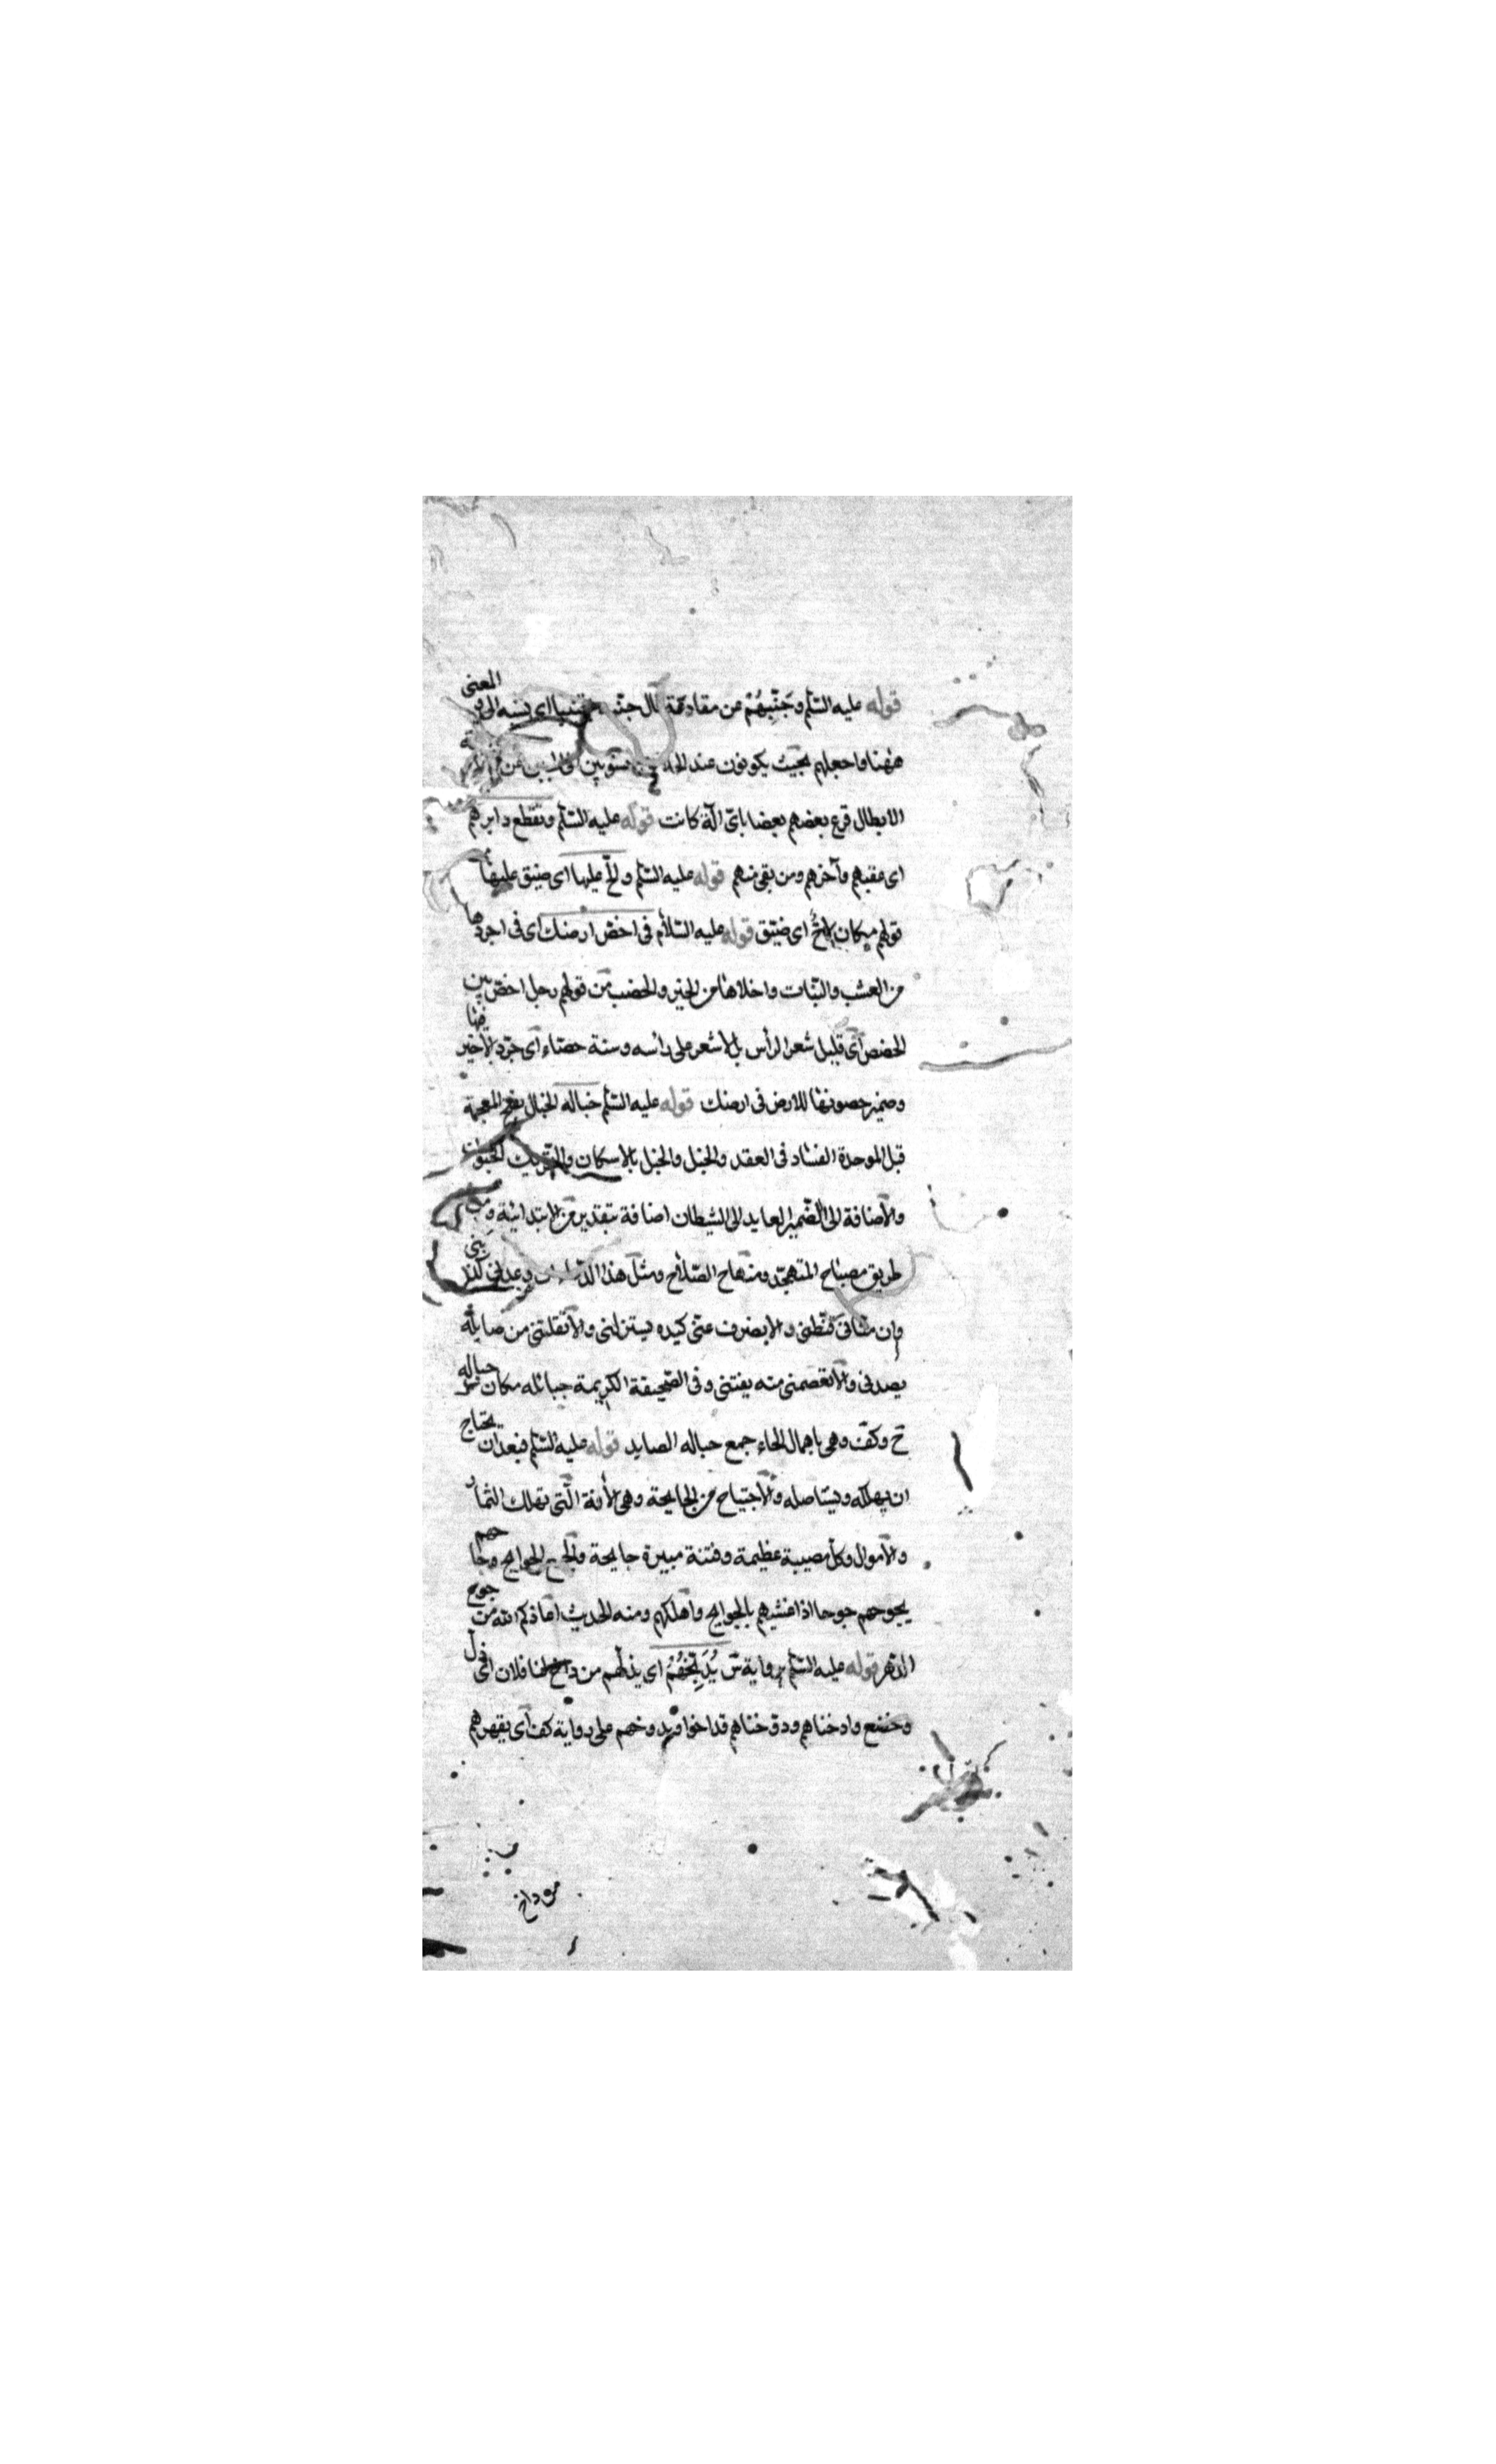 قوله عليه السّلم وجَنِّبهُمْ عن مقادمة المعنى
ههنا واجعلهم بحيث يكونون عند
الابطال قرع بعضهم بعضا باىّ آلة كانت قوله عليه السّلم وتقطع دابرهم
اى عقبهم وآخرهم ومن بقى منهم قوله عليه السّلم والحّ عليها اى ضيّق عليها
قولهم مكان لاحٌّ اى ضيّق قوله عليه السّلام فى احصّ ارضك اى فى اجردها
من العشب والنّبات واخلاها من الخير والخصب من قولهم رجل احصّ بين
الحصص اى قليل شعر الرأس بل لا شعر على رأسه وسنة حصّاء اى جرد لا خير فيها
وضمير حصونها للارض فى ارضك قوله عليه السّلم خباله الخبال بفتح المعجمة
قبل الموحدة الفساد فى العقد والخبل والخبل بالاسكان والتحريك الجنون
والاضافة الى الضّمير العايد الى الشيطان اضافة بتقدير من الابتدائية ومن
طريق مصباح المتهجّد ومنهاج الصّلاح ومثل هذا
وان منّانى قنّطنى والا يصرف عنّى كيده يستزلنى والا تفلتنى من حبايله
يصدنى والا تعصمنى منه يفتننى وفى الصّحيفة الكريمة حبائله مكان خباله
خ وكف وهى باهمال الحاء جمع حباله الصايد قوله عليه السّلم فبعد ان يحتاج
ان يهلكه ويستاصله والاجتياح من الجايحة وهى الآفة الّتى تهلك الثمار
والاموال وكل مصيبة عظيمة وفتنة مبيرة جايحة والجمع الجوايح وجاحهم
يجوحهم جوحا اذا غشيهم بالجوايح واهلكهم ومنه الحديث اعاذكم الله من جوح
الدّهر قوله عليه السّلم برواية س يُدَيِّخُهُمْ اى يذلّهم من داخ لنا فلان اى ذلّ
وخضع وادخناهم ودوّخناهم فداخوا ويدوخهم على رواية كف اى يقهرهم
من داخ